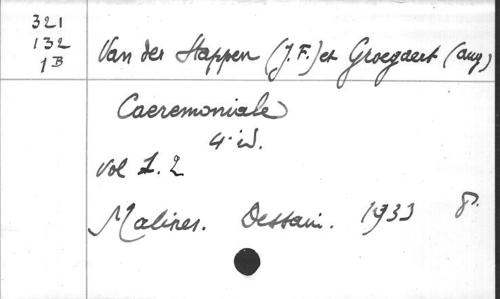 321
132
1B
Van der Stappen (J. F.) et Groegaert (Aug)
Caeremoniale
4. id.
Vol 1. 2
Malines. Dessain. 1933 8.